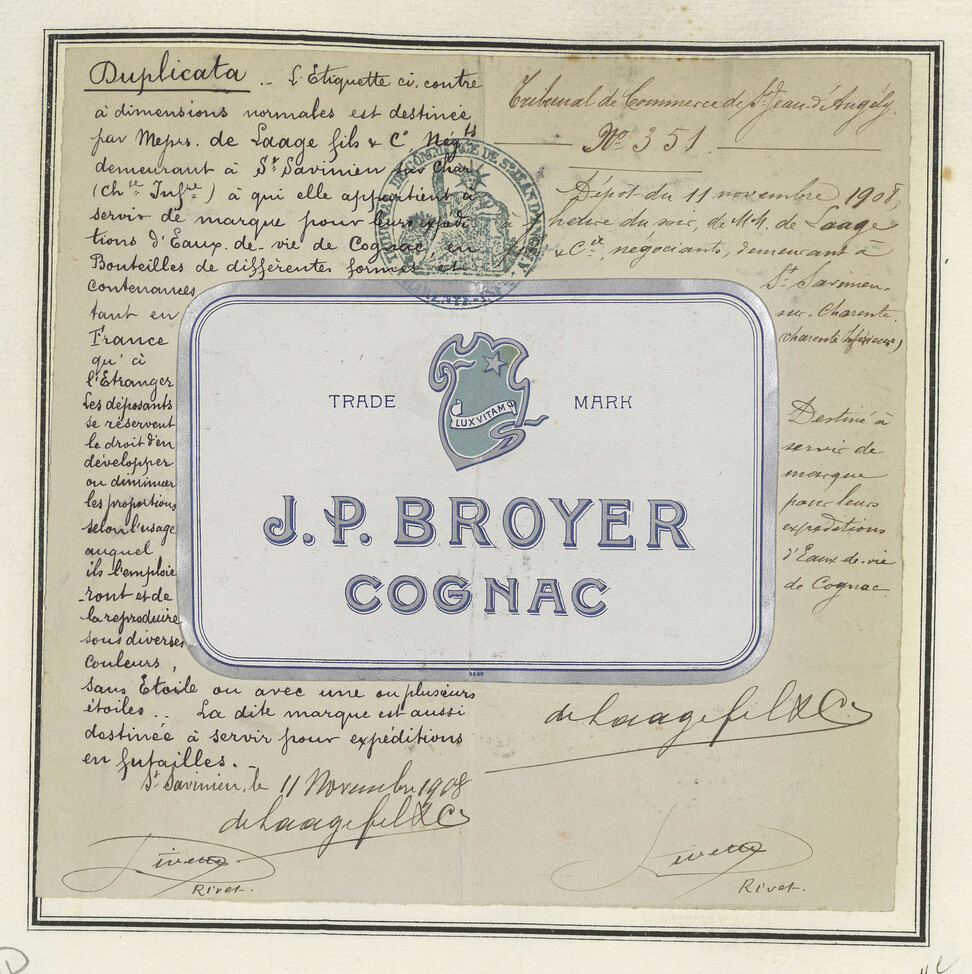 Duplicata _ L'Etiquette ci, contre
à dimensions normales est destinée
par Meprs. de Laage fils & Cº Négts
demeurant à St Savinien sur Char
(Chte Infre) à qui elle appartient à
servir de marque pour leurs expédi
tions d'Eaux-de-vie de Cognac, en
Bouteilles de différentes formes et
contenances
tant en
France
qu'à
l'Etranger
Les déposants
se réservent
le droit d'en
développer
ou diminuer
les proportions
selon l'usage
auquel
ils l'emploie
-ront et de
la reproduire
sous diverses
couleurs,
sans Etoile ou avec une ou plusieurs
étoiles.. La dite marque est aussi
destinée à servir pour expéditions
en futailles. -
St Savinien, le 11 Novembre 1908
de Laage fils & Cº
Rivet.
Tribunal de Commerce de St Jean d'Angély.
Nº 351.
Dépôt du 11 novembre 1908,
à heure du soir, de M.M. de Laage
& Cie, négociants, demeurant à
St Savinien-
sur-Charente.
(Charente Inférieure)
Destiné à
servir de
marque
pour leurs
expéditions
d'Eaux-de-vie
de Cognac.
de Laage fils & Cº
Rivet.
TRADE MARK
LUX VITAM
J.P. BROYER
COGNAC